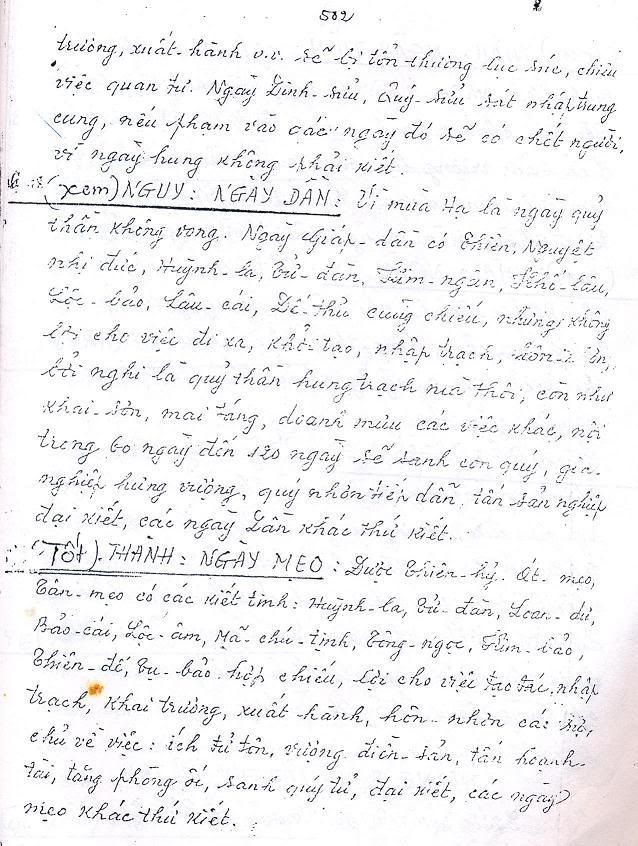 502
trương, xuất-hành v.v. sẽ bị tổn thương lục súc, chiêu
việc quan tư. Ngày Đinh-sửu, Quý-sửu sát nhập trung
cung, nếu phạm vào các ngày đó sẽ có chết người,
vì ngày hung không phải kiết.
(Xem) NGUY: NGÀY DẦN: Vì mùa Hạ là ngày quỷ
thần không vong. Ngày Giáp-dần có Thiên, Nguyệt
nhị đức, Huỳnh-la, Tử-đàn, Kim-ngân, Khố-lâu,
Lộc-bảo, Lâu-cái, Đế-thủ cùng chiếu, nhưng không
lợi cho việc đi xa, khởi tạo, nhập trạch, hôn-
bởi nghi là quỷ thần hung trạch mà thôi, còn như
khai-sơn, mai táng, doanh mưu các việc khác, nội
trong 60 ngày đến 120 ngày sẽ sanh con quý, gia-
nghiệp hưng vượng, quý nhơn tiếp dẫn, tấn sản nghiệp
đại kiết, các ngày Dần khác thứ kiết.
(Tốt) THÀNH: NGÀY MẸO: Được Thiên-hỷ. Ất-mẹo,
Tân-mẹo có các kiết tinh: Huỳnh-la, Tử-đàn, Loan-dư,
Bảo-cái, Lộc-âm, Mã-chú-tinh, Tông-ngọc, Kim-bảo,
Thiên-đế, Tụ-bảo hợp chiếu, lợi cho việc tạo tác, nhập
trạch, khai trương, xuất-hành, hôn-nhơn các sự,
chủ về việc: ích tử tôn, vượng điền-sản, tấn hoạnh-
tài, tăng phòng ốc, sanh quý tử, đại kiết, các ngày
mẹo khác thứ kiết.